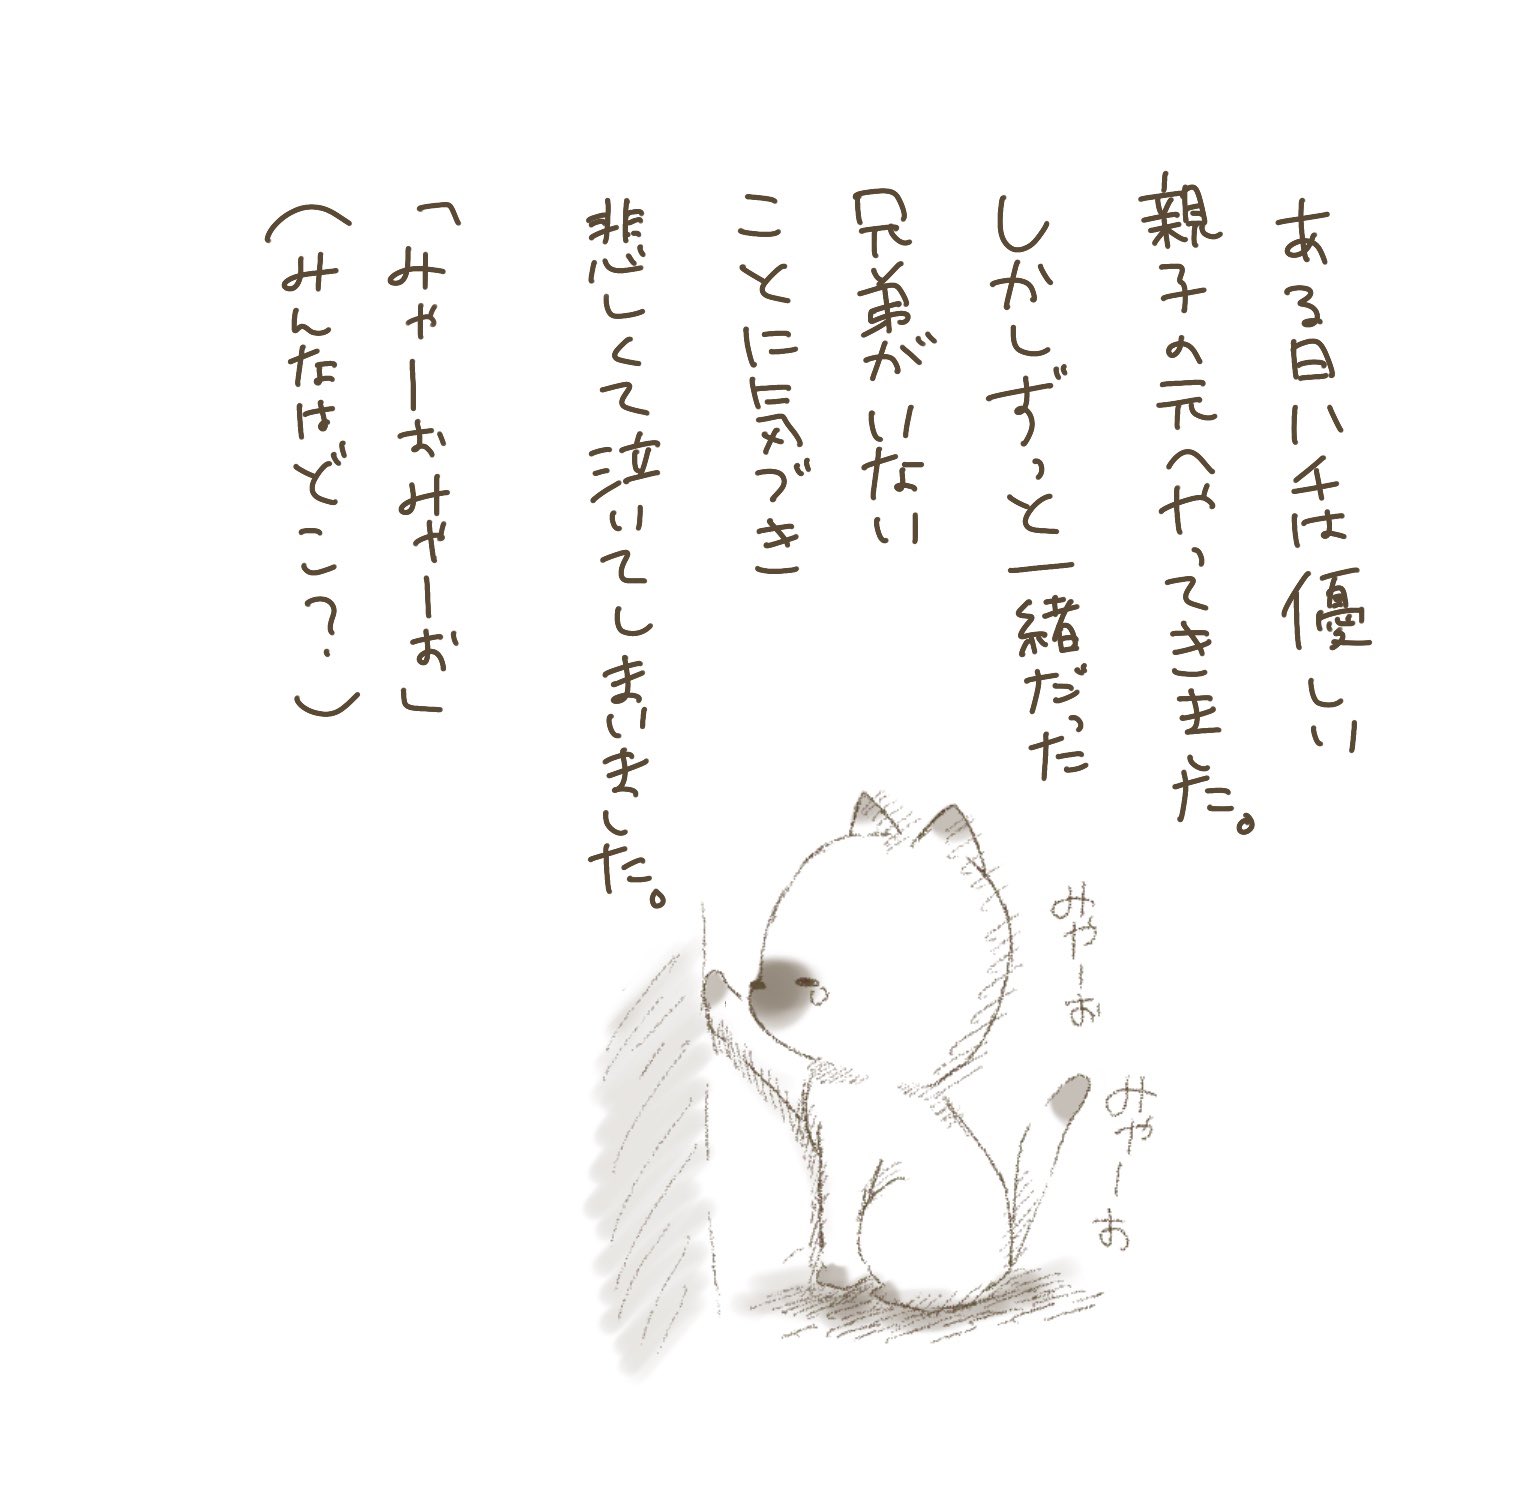 ある日ハチは優しい
親子の元へやってきました。
しかしずっと一緒だった
兄弟がいない
ことに気づき
悲しくて泣いてしまいました。
「みゃーおみゃーお」
(みんなはどこ?)
みゃーお
みゃーお